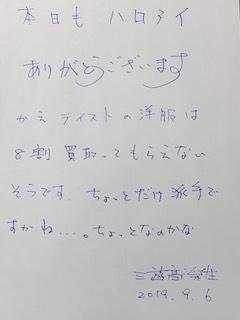 本日も ハロアイ
ありがとうございます
かえ テイストの洋服は
8割 買取ってもらえない
そうです. ちょっとだけ 派手で
すかね…。ちょっとなのかな
2019. 9. 6